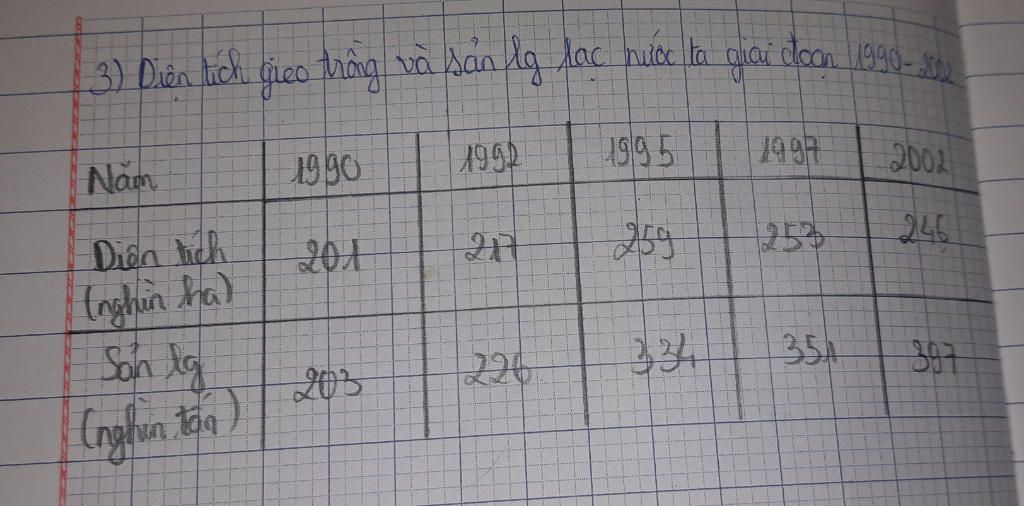 3) Diện tích gieo trồng và sản lg lạc nước ta giai đoạn 1990-2002
Năm 1990 1992 1995 1997 2002
Diện tích
(nghìn ha) 201 217 259 253 246
Sản lg
(nghìn tấn) 203 226 334 351 397